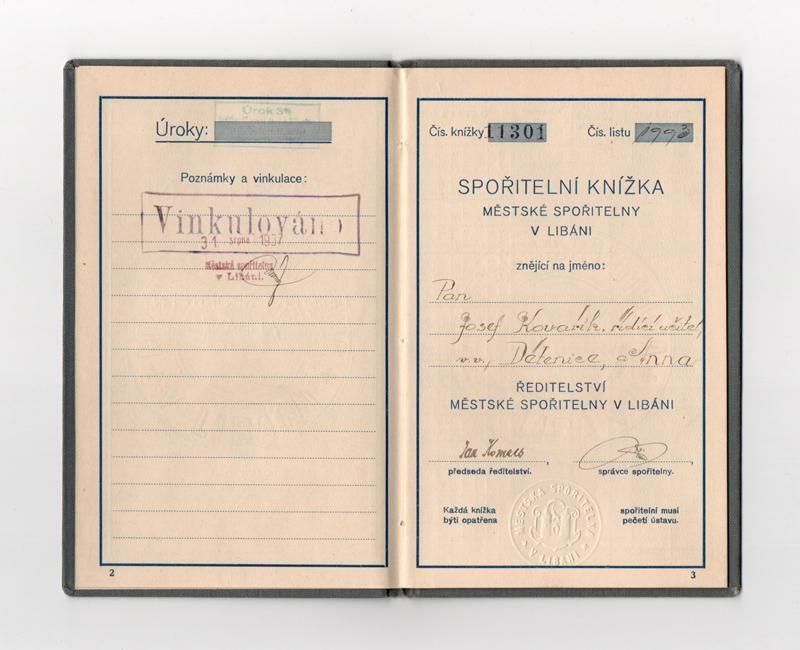 Úrok 3%
Úroky:
Poznámky a vinkulace:
Vinkulováno
31 srpna 1937
Městská spořitelna
v Libáni.
2
Čís. knížky 11301 Čís. listu 1993
SPOŘITELNÍ KNÍŽKA
MĚSTSKÉ SPOŘITELNY
V LIBÁNI
znějící na jméno:
Pan
Josef Kovařík, řídící učitel,
v.v., Dětenice, a Anna
ŘEDITELSTVÍ
MĚSTSKÉ SPOŘITELNY V LIBÁNI
Jan
předseda ředitelství. správce spořitelny.
Každá knížka spořitelní musí
býti opatřena pečetí ústavu.
MĚSTSKÁ SPOŘITELNA
V LIBÁNI
3